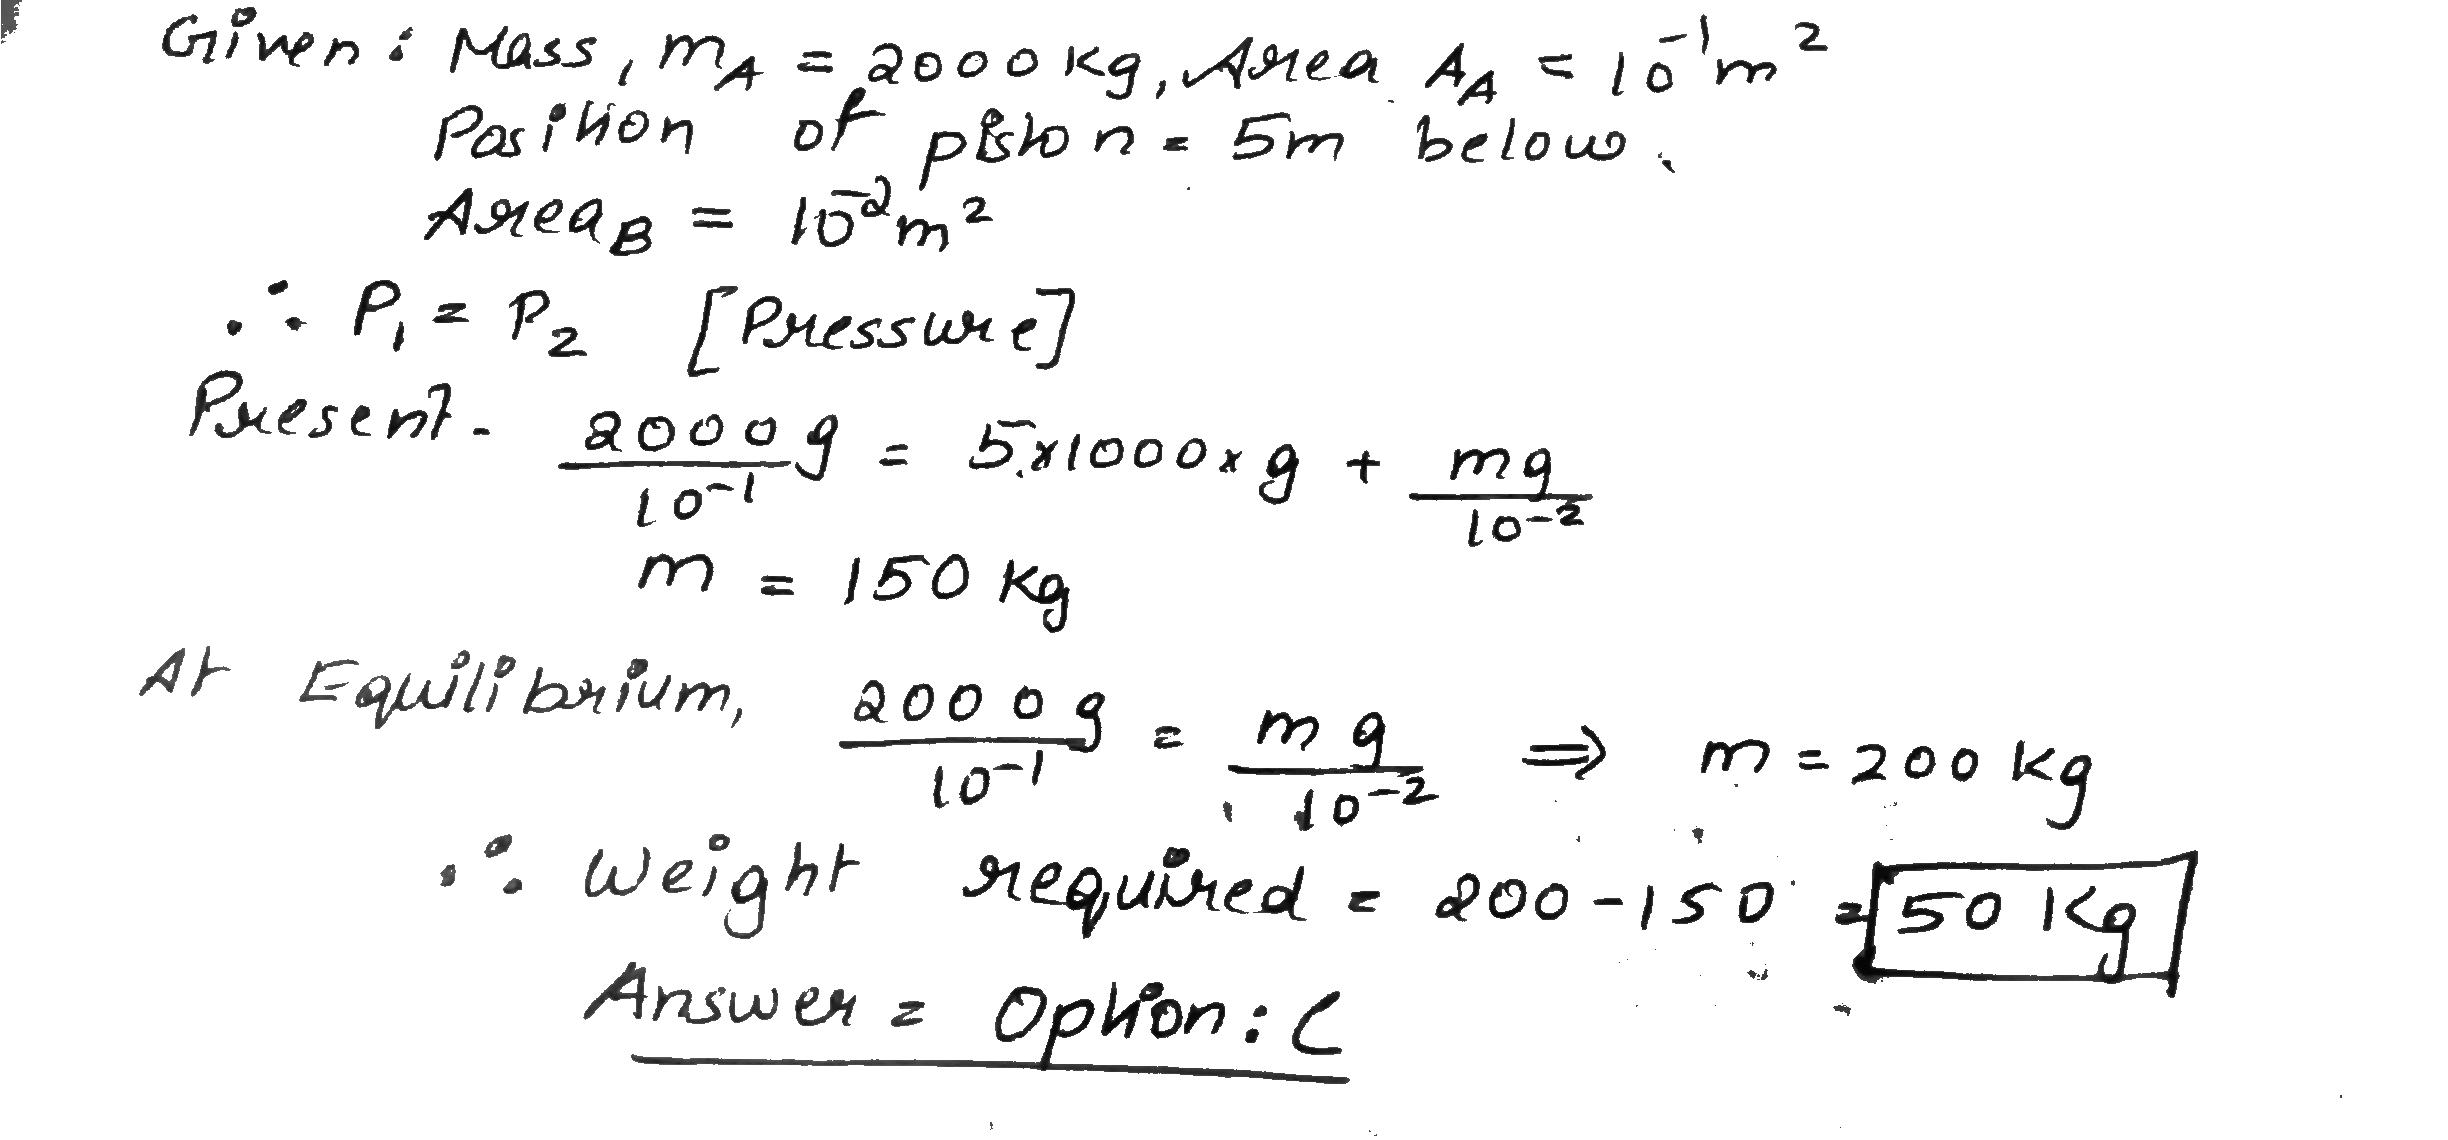 Given : Mass, m_A = 2000 kg, Area A_A = 10⁻¹ m²
Position of piston = 5m below.
Area_B = 10⁻² m²
∴ P₁ = P₂ [Pressure]
Present - 2000g/10⁻¹ = 5×1000×g + mg/10⁻²
m = 150 kg
At Equilibrium, 2000g/10⁻¹ = mg/10⁻² ⇒ m = 200 kg
∴ Weight required = 200 - 150 = 50 Kg
Answer = Option : C